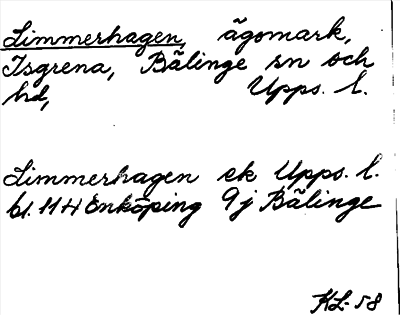 Limmerhagen, ägomark,
Isgrena, Bälinge sn och
hd, Upps. l.
Limmerhagen ek Upps. l.
bl. 114 Enköping 9j Bälinge
KL-58